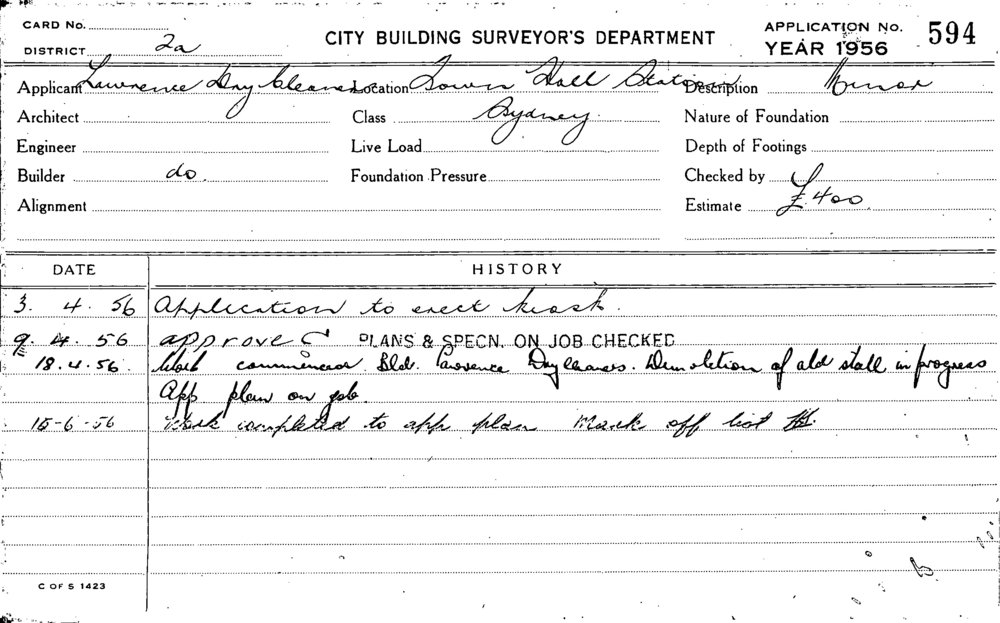 CARD No.
DISTRICT 2a
CITY BUILDING SURVEYOR'S DEPARTMENT
APPLICATION No. 594
YEAR 1956
Applicant Lawrence Dry Cleaners Location Town Hall Station Description Minor
Architect Class Sydney Nature of Foundation
Engineer Live Load Depth of Footings
Builder do. Foundation Pressure Checked by
Alignment Estimate £400.
DATE HISTORY
3. 4. 56 Application to erect kiosk.
9. 4. 56 approved PLANS & SPECN. ON JOB CHECKED
18.4.56. Work commenced Bld. Lawrence Drycleaners. Demolition of old stall in progress
App plan on job.
15-6-56 Work completed to app plan Mark off list
C OF S 1423